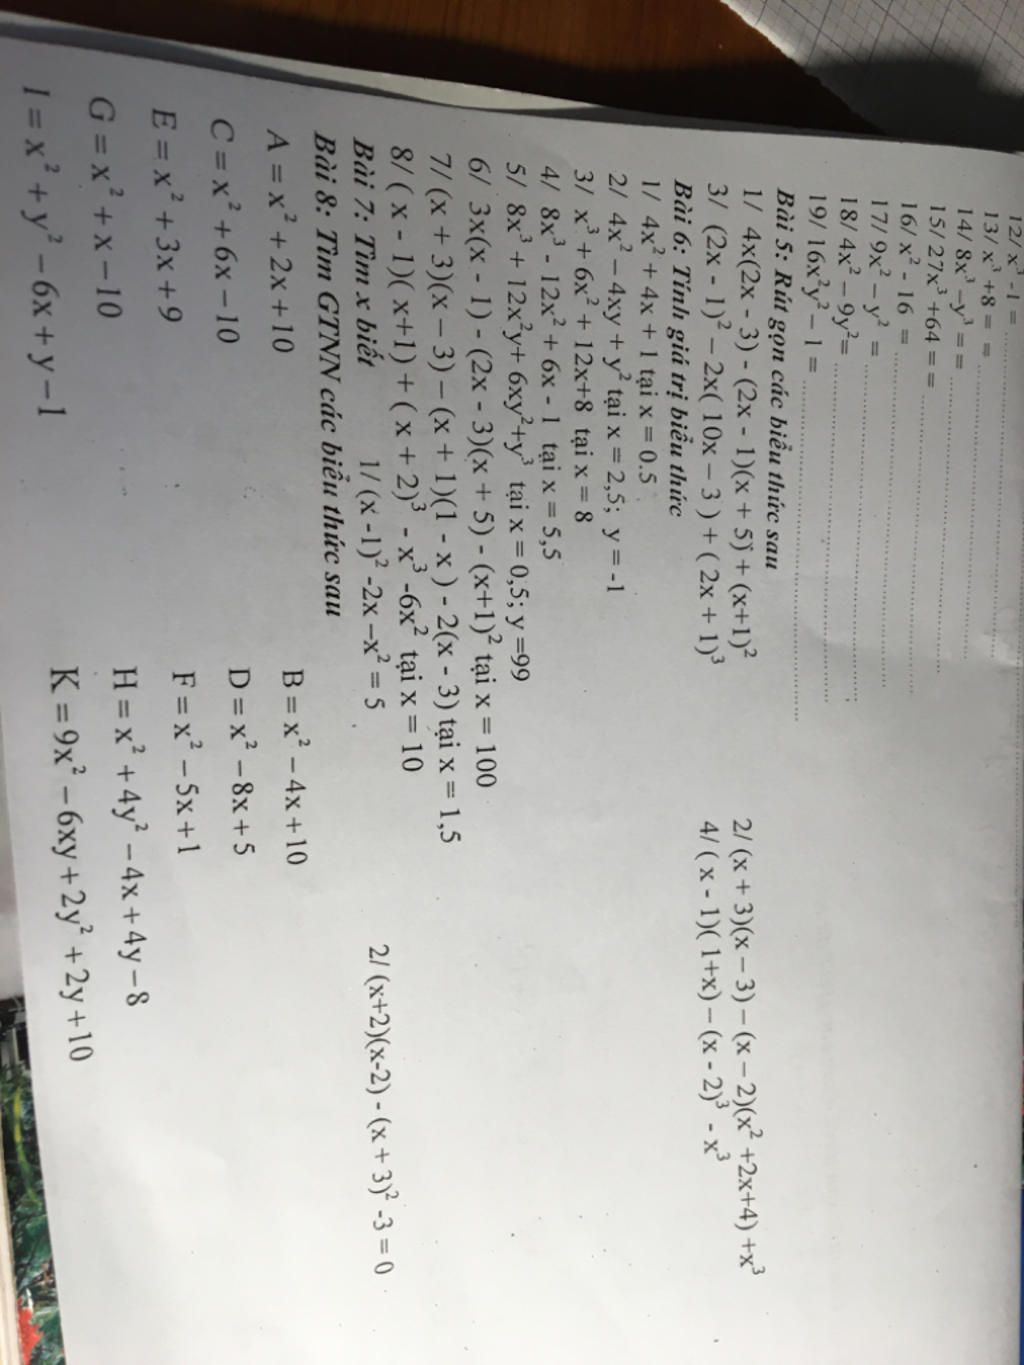 12/ x³ -1 = ........
13/ x³ +8 = = ........
14/ 8x³ –y³ = = ........
15/ 27x³ +64 = = ........
16/ x² - 16 = ........
17/ 9x² – y² = ........
18/ 4x² – 9y²= ........
19/ 16x²y² – 1 = ........
Bài 5: Rút gọn các biểu thức sau
1/ 4x(2x - 3) - (2x - 1)(x + 5) + (x+1)² 2/ (x + 3)(x – 3) – (x – 2)(x² +2x+4) +x³
3/ (2x - 1)² – 2x( 10x – 3 ) + ( 2x + 1)³ 4/ ( x - 1)( 1+x) – (x - 2)³ - x³
Bài 6: Tính giá trị biểu thức
1/ 4x² + 4x + 1 tại x = 0.5
2/ 4x² – 4xy + y² tại x = 2,5; y = -1
3/ x³ + 6x² + 12x+8 tại x = 8
4/ 8x³ - 12x² + 6x - 1 tại x = 5,5
5/ 8x³ + 12x²y+ 6xy²+y³ tại x = 0,5; y =99
6/ 3x(x - 1) - (2x - 3)(x + 5) - (x+1)² tại x = 100
7/ (x + 3)(x – 3) – (x + 1)(1 - x ) - 2(x - 3) tại x = 1,5
8/ ( x - 1)( x+1) + ( x + 2)³ - x³ -6x² tại x = 10
Bài 7: Tìm x biết 1/ (x -1)² -2x –x² = 5 2/ (x+2)(x-2) - (x + 3)² -3 = 0
Bài 8: Tìm GTNN các biểu thức sau
A = x² + 2x +10 B = x² – 4x +10
C = x² + 6x –10 D = x² –8x + 5
E = x² +3x +9 F = x² –5x +1
G = x² + x –10 H = x² + 4y² – 4x + 4y –8
I = x² + y² – 6x + y –1 K = 9x² – 6xy + 2y² + 2y +10